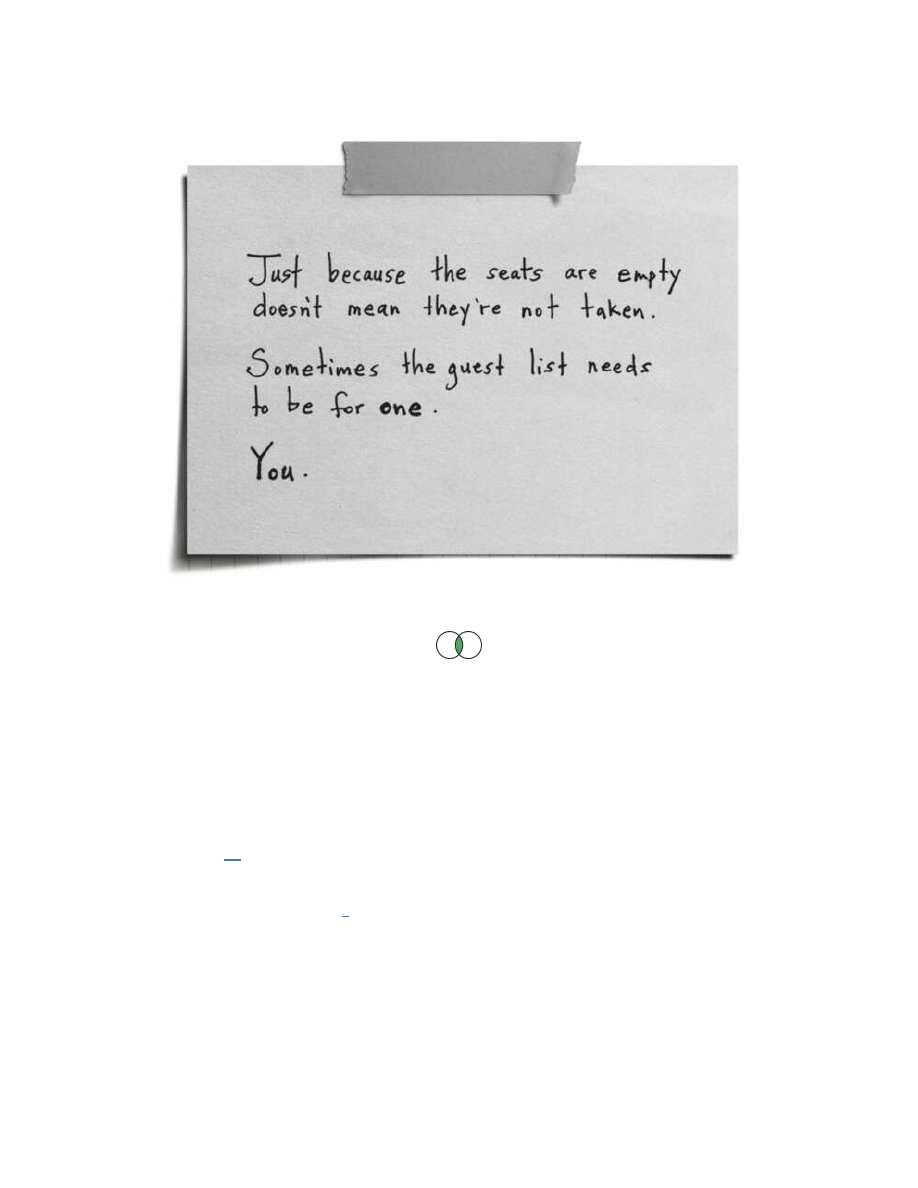 Just because the seats are empty
doesn't mean they're not taken.
Sometimes the guest list needs
to be for one.
You.